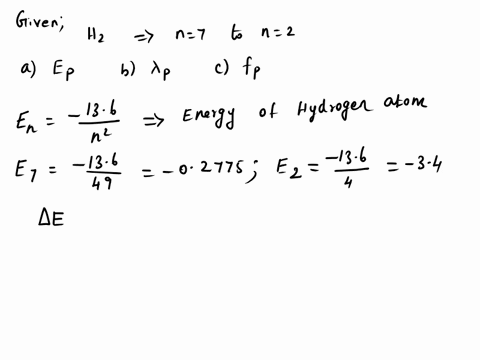 Given;
H₂ => n=7 to n=2
a) Eₚ b) λₚ c) fₚ
Eₙ = -13.6/n² => Energy of Hydrogen atom
E₇ = -13.6/49 = -0.2775; E₂ = -13.6/4 = -3.4
ΔE